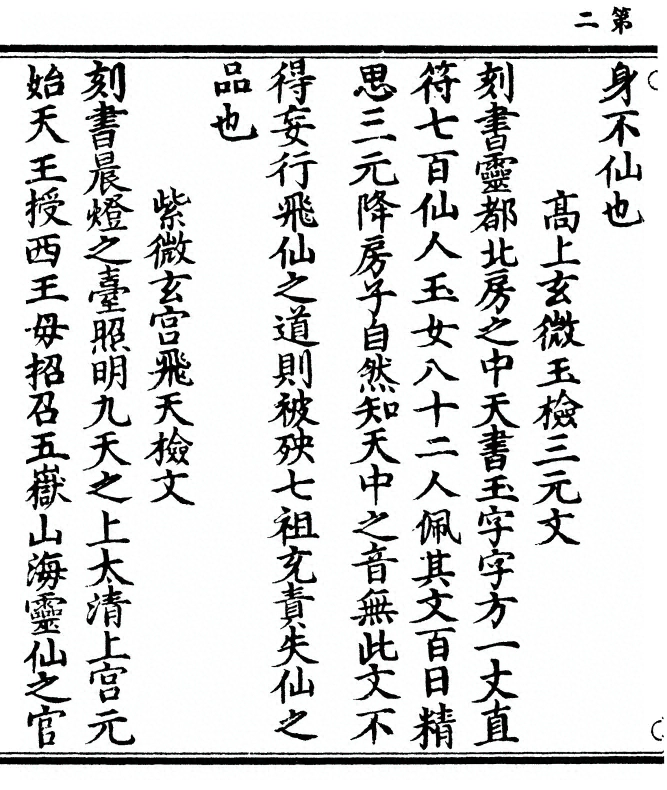 第二
身不仙也
高上玄微玉檢三元文
刻書靈都北房之中天書玉字字方一丈直
符七百仙人玉女八十二人佩其文百日精
思三元降房子自然知天中之音無此文不
得妄行飛仙之道則被殃七祖充責失仙之
品也
紫微玄宫飛天檢文
刻書晨燈之臺照明九天之上太清上宫元
始天王授西王母招召五嶽山海靈仙之官